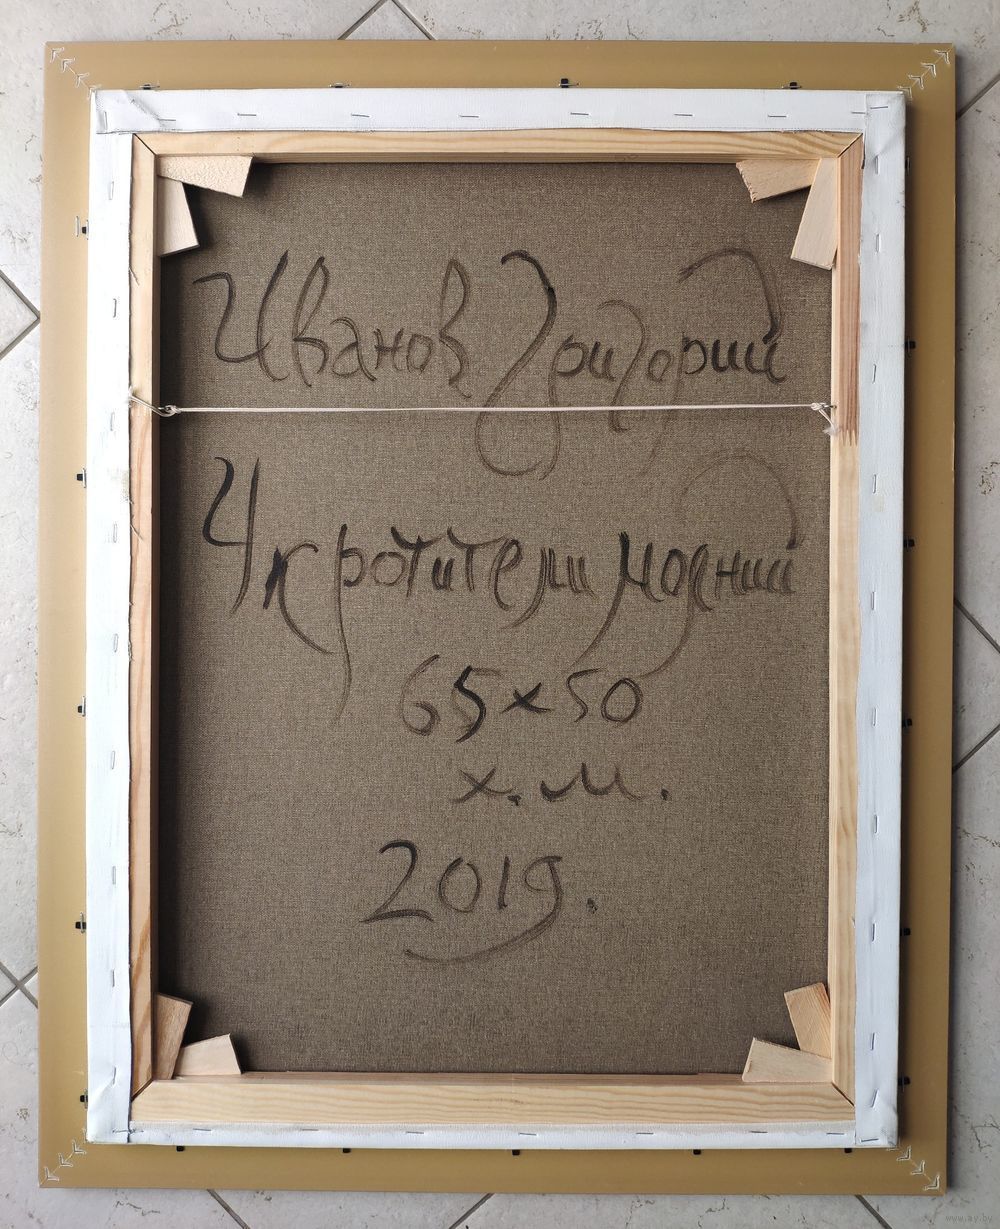 Иванов Григорий
Укротители молний
65x50
х.м.
2019.
www.ay.by